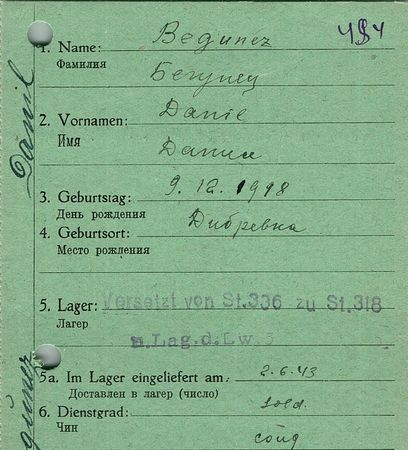 484
1. Name: Begunez
Фамилия Бегунец
2. Vornamen: Daniel
Имя Данил
3. Geburtstag: 9.12.1918
День рождения
4. Geburtsort: Дибревка
Место рождения
5. Lager: Versetzt von St.336 zu St.318
Лагер
Lag.d.Lw.
5a. Im Lager eingeliefert am: 2.6.43
Доставлен в лагер (число)
6. Dienstgrad: sold.
Чин солд
Daniil